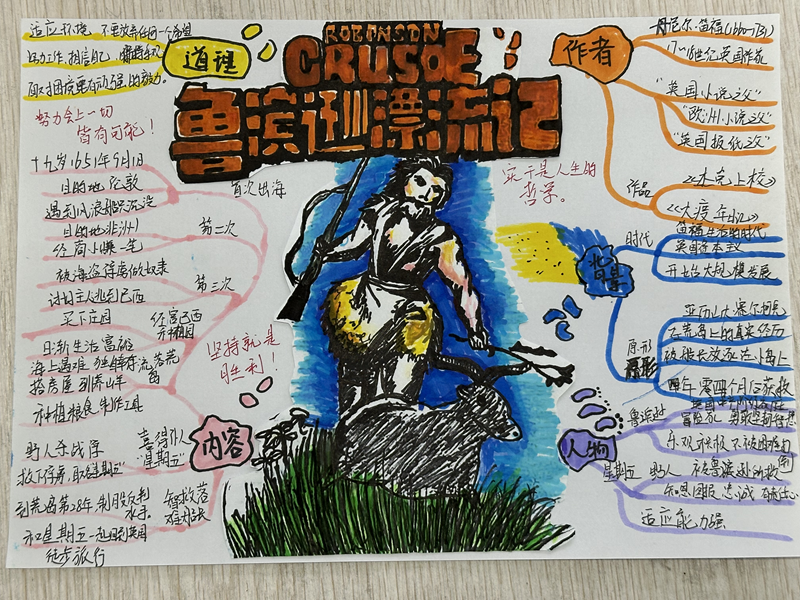 ROBONSON
CRUSOE
鲁滨逊漂流记
道理
适应环境 不要放弃任何一个希望
努力工作,相信自己
努力会上一切
皆有可能!
十九岁1651年9月1日
目的地 伦敦
首次出海
遇到风浪船只沉没
目的地(非洲)
第二次
经商小赚一笔
被海盗俘虏做奴隶
第三次
讨划主人逃到巴西
买下庄园
经营巴西
种植园
日渐生活富裕
海上遇难 独自漂流荒
岛
搭房屋 驯养山羊
种植粮食 制作工具
坚持就是
胜利!
内容
野人杀战俘
喜得仆人
"星期五"
救下俘虏 取名"星期五"
到荒岛第28年 制服反判
水手
智救落
难船长
和星期五一起回到英国
徒步旅行
实干是人生的
哲学。
作者
丹尼尔·笛福(1660-1731)
17-18世纪英国作家
"英国小说之父"
"欧洲小说之父"
"英国报纸之父"
作品
《杰克上校》
《大疫年记》
背景
时代
笛福生活的时代
英国资本主义
开始大规模发展
原形
原形
亚历山大·塞尔柯克
在荒岛上的真实经历
被船长放逐在小岛上
四年零四个月后获救
人物
鲁滨逊
冒险家
乐观积极 不被困难打
倒
星期五 野人 被鲁滨逊所救
知恩图报 忠诚 有责任心
适应能力强